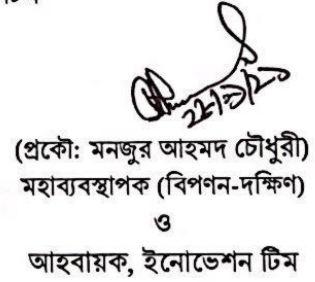 (প্রকৌ: মনজুর আহমদ চৌধুরী)
মহাব্যবস্থাপক (বিপণন-দক্ষিণ)
ও
আহবায়ক, ইনোভেশন টিম